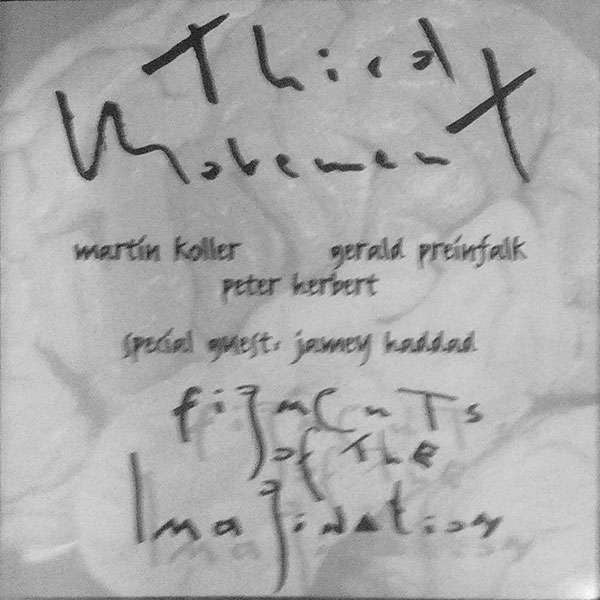 Third
Movement
martin koller gerald preinfalk
peter herbert
special guest: jamey haddad
figmenTs
of The
Imagination